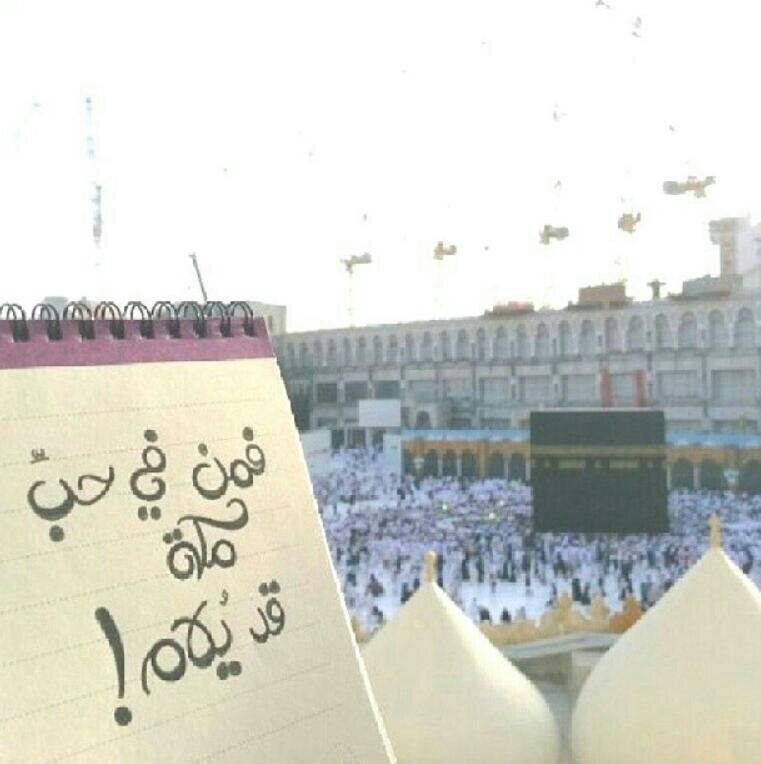 فمن في حبّ
مكة
قد يُلام!